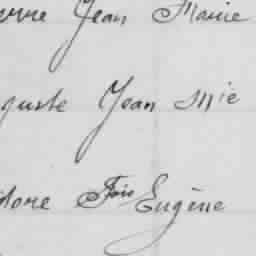 erre Jean Marie
guste Jean Mie
dore Fois Eugène